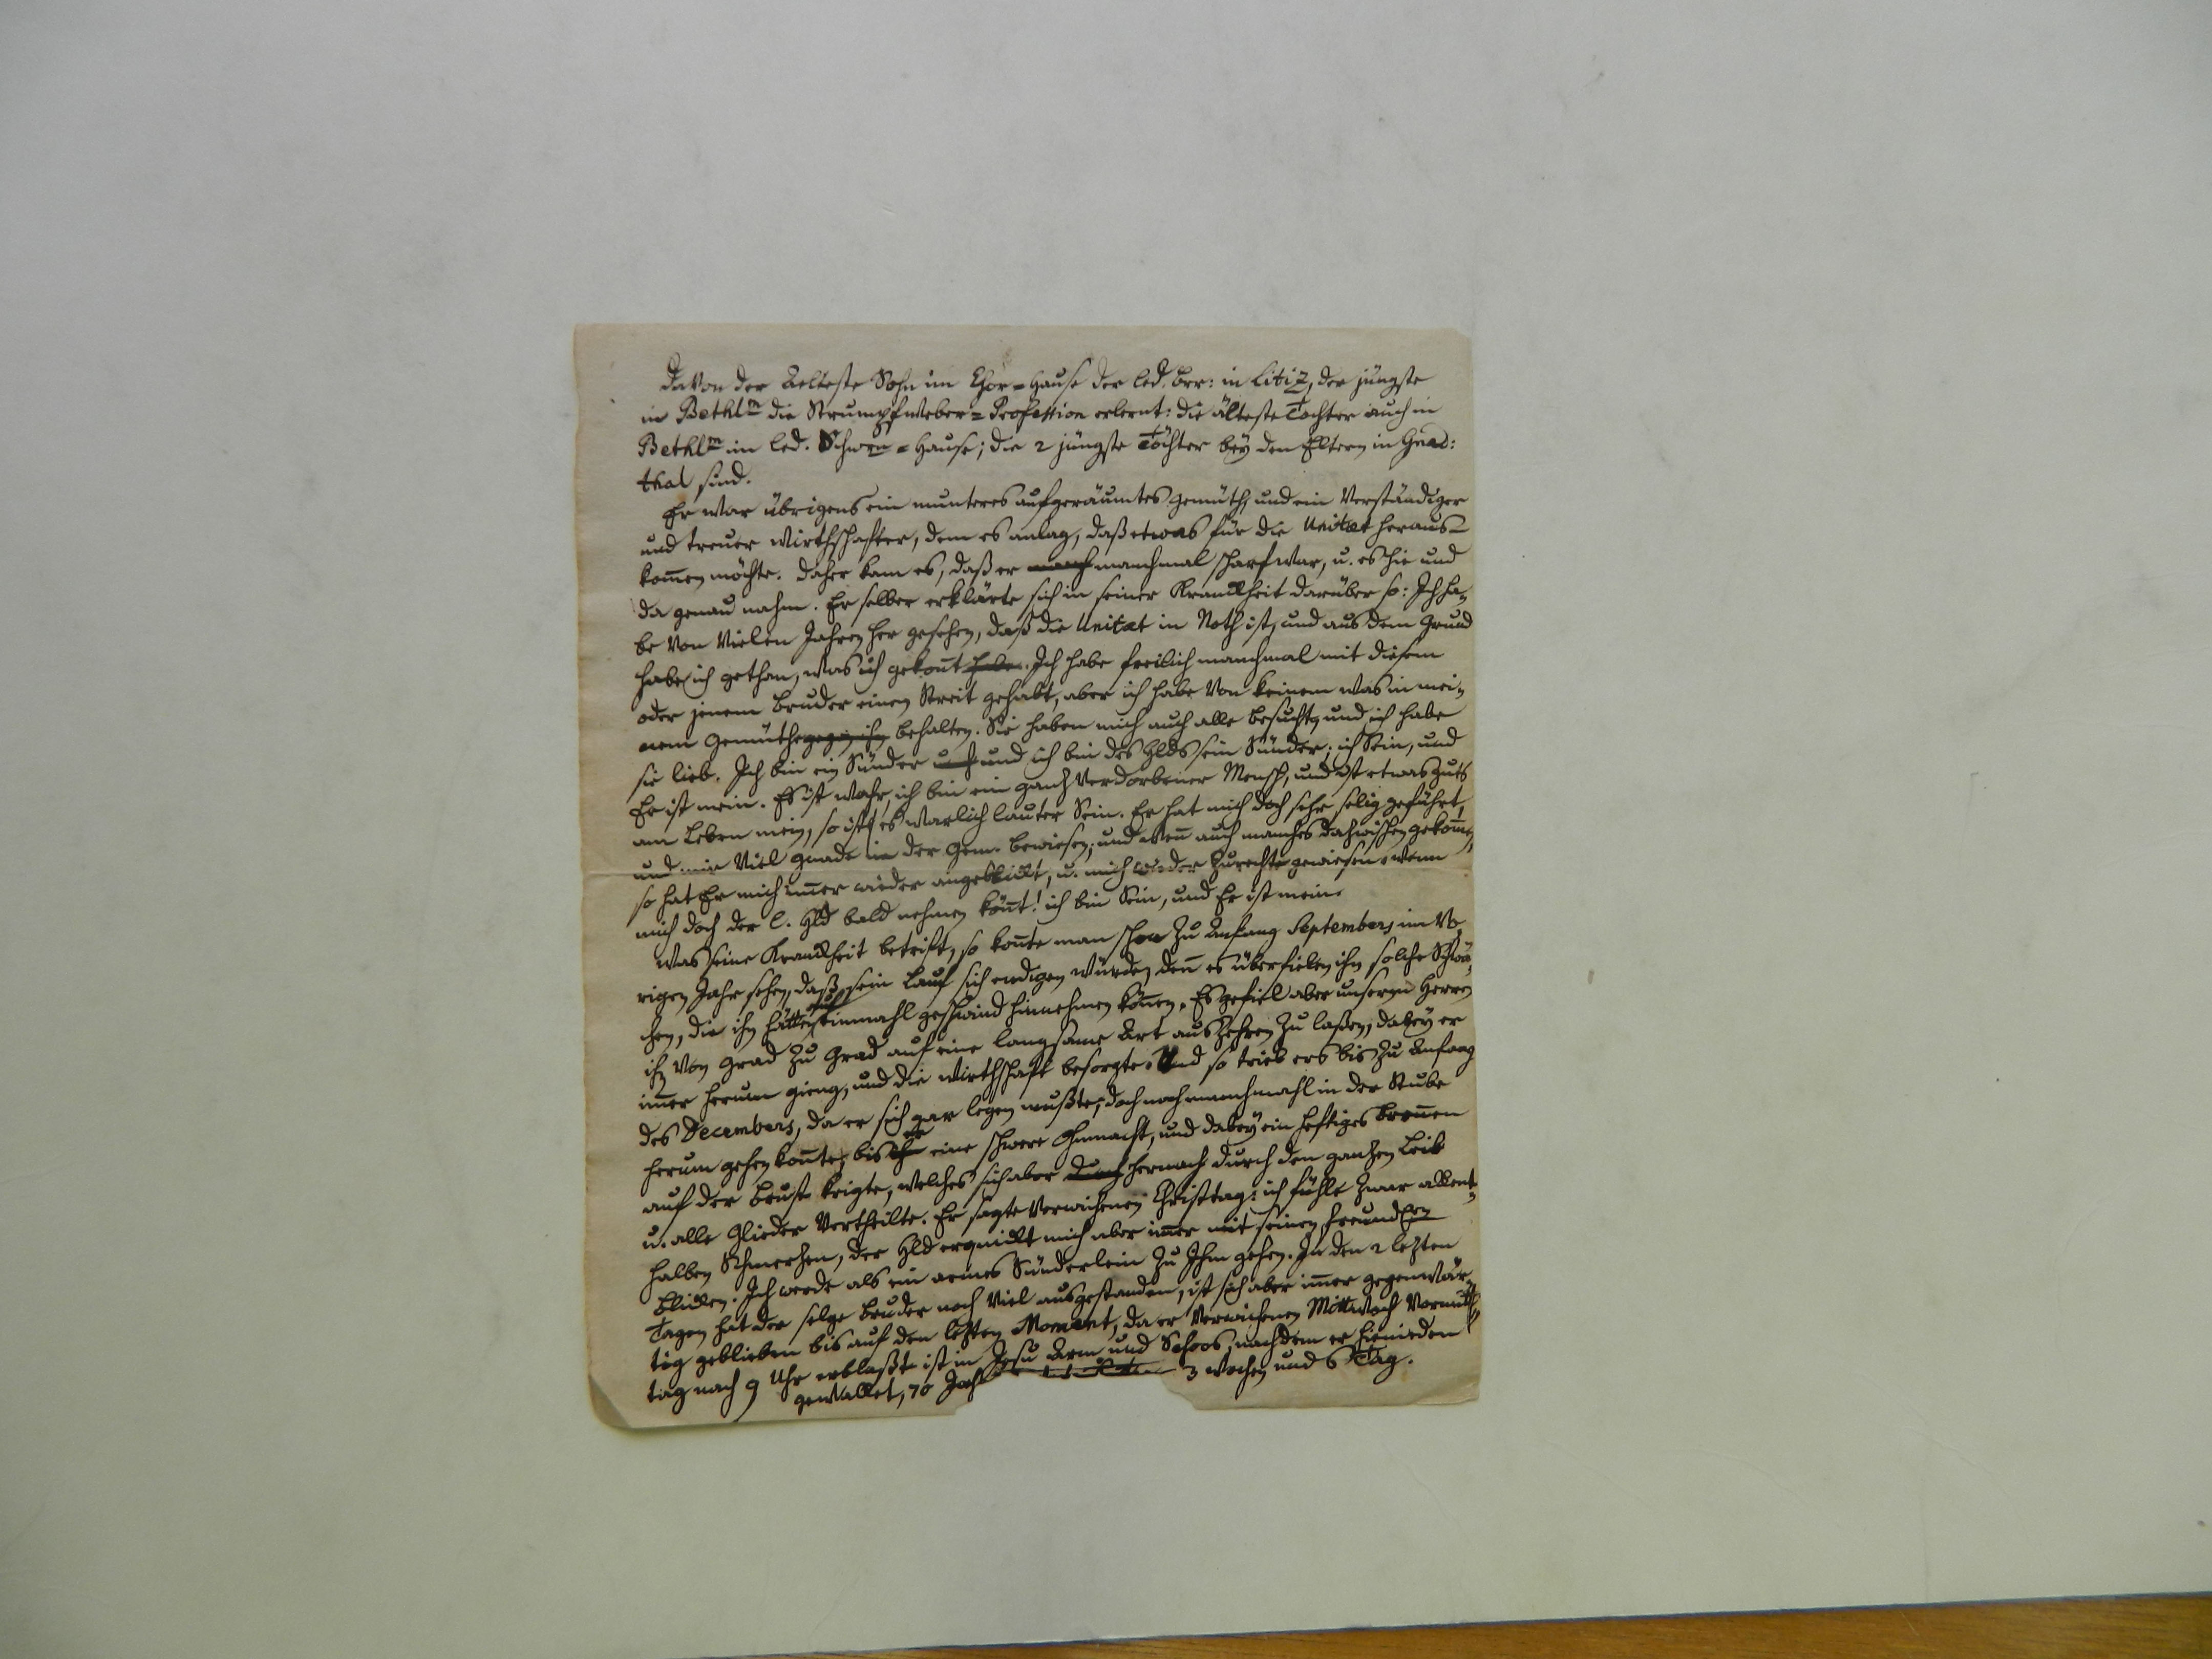 davon der Aelteste Sohn im Chor=Hause der led. Brr: in Litiz, der jüngste
in Bethlm die Strumpfweber=Profession erlernt: die älteste Tochter auch in
Bethlm im led. Schwn=Hause; die 2 jüngste Töchter bey den Eltern in Gnad:
thal sind.
Er war übrigens ein munteres aufgeräumtes Gemüth, und ein Verständiger
und treuer Wirthschafter, dem es anlag, daß etwas für die Unitæt heraus=
kom̅en möchte. Daher kam es, daß er manchmal scharf war, u. es hie und
da genau nahm. Er selber erklärte sich in seiner Kranckheit darüber so: Ich ha=
be von vielen Jahren her gesehen, daß die Unitæt in Noth ist, und aus dem Grund
habe ich gethan, was ich gekont habe. Ich habe freilich manchmal mit diesem
oder jenem Bruder einen Streit gehabt, aber ich habe von keinem was in mei=
nem Gemüthe gegen ihn behalten. Sie haben mich auch alle besucht, und ich habe
sie lieb. Ich bin ein Sünder und ich bin des Hlds sein Sünder; ich Sein, und
Er ist mein. Es ist wahr, ich bin ein ganz verdorbener Mensch, und ist etwas guts
am Leben mein, so ist es warlich lauter Sein. Er hat mich doch sehr selig geführt,
und mir viel Gnade in der Gem. bewiesen; und wen̅ auch manches dazwischen gekom̅en,
so hat Er mich im̅er wieder angeblickt, u. mich wieder zurechte gewiesen. wenn
mich doch der l. Hld bald nehmen könt! ich bin Sein, und Er ist mein.
Was seine Kranckheit betrift, so konte man schon zu Anfang Septembers im Vo=
rigen Jahr sehen, daß sein Lauf sich endigen würde, den̅ es überfielen ihn solche Schwä=
chen, die ihn hätten auf einmahl geschwind hinnehmen kön̅en. Es gefiel aber unserm Herrn
ihn von Grad zu Grad auf eine langsame Art auszehren zu laßen, dabey er
im̅er herum gieng, und die Wirthschaft besorgte. Und so trieb ers bis zu Anfang
des Decembers, da er sich gar legen mußte; doch noch manchmahl in der Stube
herum gehen konte, bis er eine schwere Ohnmacht, und dabey ein heftiges Bren̅en
auf der Brust kriegte, welches sich aber hernach durch den ganzen Leib
u. alle Glieder vertheilte. Er sagte verwichenen Christtag: ich fühle zwar allent=
halben Schmerzen, der Hld erquickt mich aber im̅er mit seinen freundlln
Blicken. Ich werde als ein armes Sünderlein zu Ihm gehen. In den 2 lezten
Tagen hat der selge Bruder noch viel ausgestanden, ist sich aber im̅er gegenwär=
tig geblieben bis auf den lezten Moment, da er verwichenen Mittwoch Vormit=
tag nach 9 Uhr erblaßte ist in Jesu Arm und Schoos, nachdem er hienieden
gewallet, 70 Jahr 3 Wochen und 6 Tag.